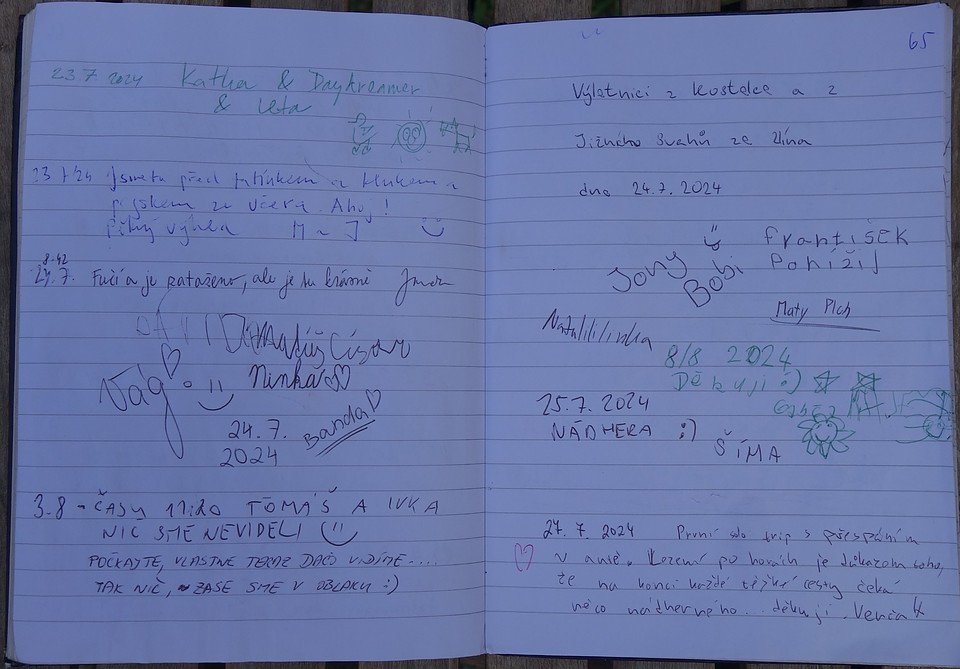 23.7 2024 Katka & Daykrenner
& Leta
23 7/24 Jsme tu před tatínkem a klukem a
pejskem ze včera. Ahoj!
Pěkný výhled M + J
8:42
24.7. Fučí a je zataženo, ale je tu krásně
Matúš Císar
Vág :)
Ninka
24.7.
2024
Banda
3.8 - ČASU 17:20 TOMÁŠ A IVKA
NIČ SME NEVIDELI
POČKAJTE, VLASTNE TERAZ DAČO VIDÍME....
TAK NIČ, ZASE SME V OBLAKU :)
65
Výletníci z Kostelce a z
Jižních Svahů ze Zlína
dne 24.7.2024
Jony
Bobi
františEK
PonížiJ
Maty Plch
Natalililinka
8/8 2024
Děkuji :)
25.7.2024
NÁDHERA :)
ŠÍMA
27.7.2024 První solo trip s přespáním
v autě. Lezení po horách je důkazem toho,
že na konci každé těžké cesty čeká
něco nádherného. děkuji. Venča